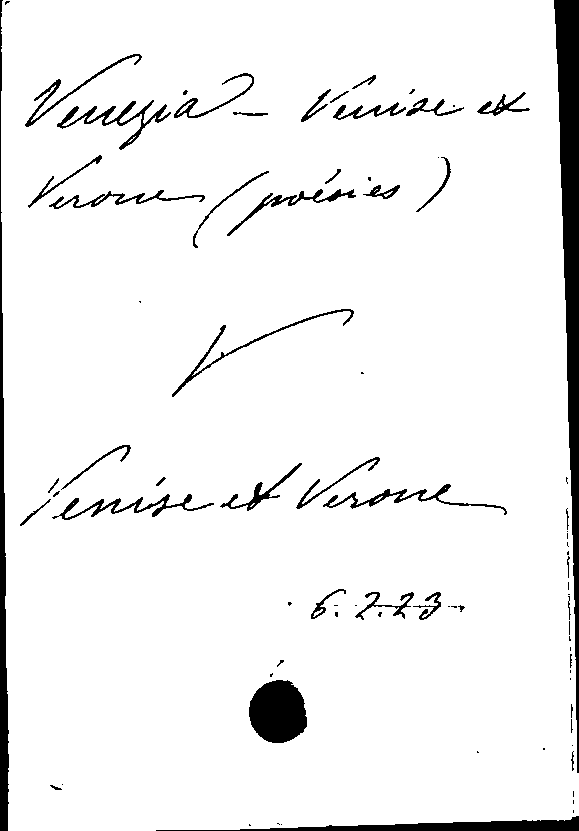 Venezia – Venise et
Verone (poésies)
V
Venise et Verone
6.2.23.